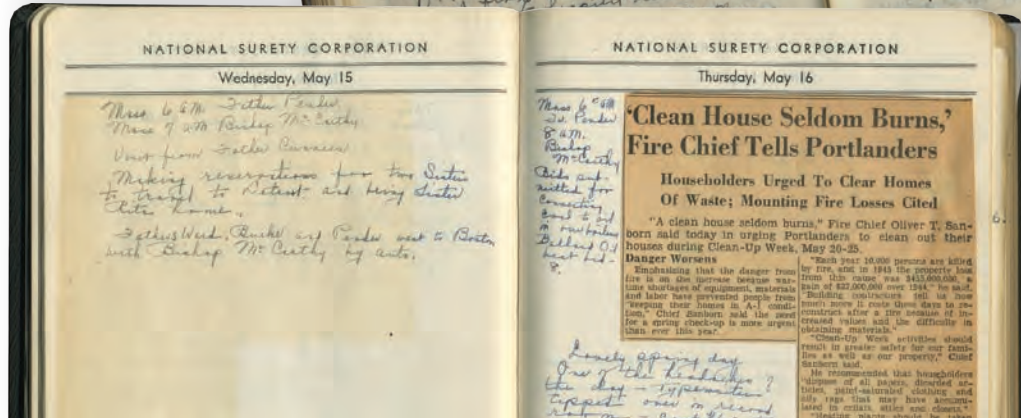 NATIONAL SURETY CORPORATION
Wednesday, May 15
Mass 6 A.M. Father Pender
Mass 7 A.M. Bishop McCarthy
Visit from Father
Making reservations for two Sisters
to travel to Detroit and bring Sister
Rita home.
Fathers and Pender went to Boston
with Bishop McCarthy by auto.
NATIONAL SURETY CORPORATION
Thursday, May 16
Mass 6 AM
Fr. Pender
8 A.M.
Bishop
McCarthy
Bids sub-
mitted for
converting
coal to oil
in our boilers
Ballard Oil
best bid-
'Clean House Seldom Burns,'
Fire Chief Tells Portlanders
Householders Urged To Clear Homes
Of Waste; Mounting Fire Losses Cited
"A clean house seldom burns," Fire Chief Oliver T. San-
born said today in urging Portlanders to clean out their
houses during Clean-Up Week, May 20-25.
Danger Worsens
Emphasizing that the danger from
fire is on the increase because war-
time shortages of equipment, materials
and labor have prevented people from
"keeping their homes in A-1 condi-
tion," Chief Sanborn said the need
for a spring check-up is more urgent
than ever this year.
"Each year 10,000 persons are killed
by fire, and in 1945 the property loss
from this cause was $455,000,000, a
gain of $32,000,000 over 1944," he said.
"Building contractors tell us how
much more it costs these days to re-
construct after a fire because of in-
creased values and the difficulty in
obtaining materials."
"Clean-Up Week activities should
result in greater safety for our fami-
lies as well as our property," Chief
Sanborn said.
He recommended that householders
"dispose of all papers, discarded ar-
ticles, paint-saturated clothing and
oily rags that may have accumu-
lated in cellars, attics and closets."
6.
Lovely spring day
One of the headaches of
the day - Typewriter
tippet over in record
room